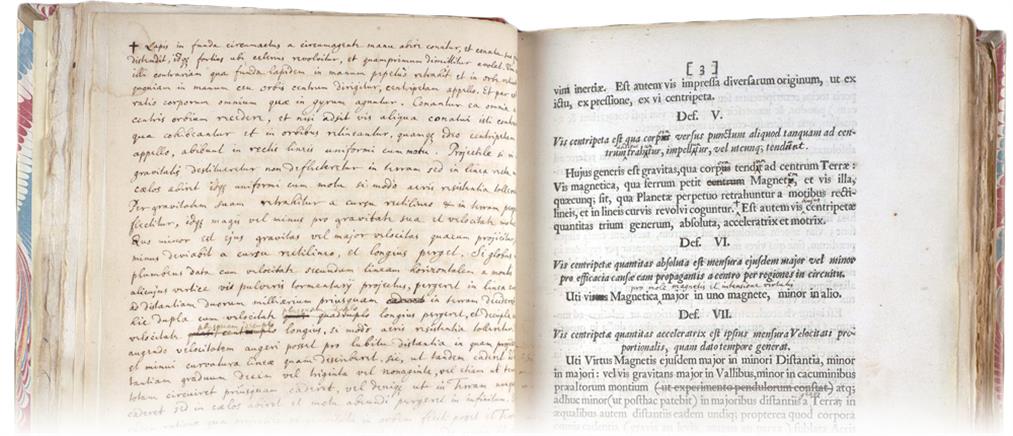 ✝ Lapis in funda circumactus a circumagente manu abire conatur, et conatu suo
distendit, idqꝫ fortius ubi celerius revolvitur, et quamprimum dimittitur avolat.
illi contrariam qua funda lapidem in manum perpetuo retrahit et in orbe
quoniam in manum ceu orbis centrum dirigitur, centripetam appello. Et par est
ratio corporum omnium quæ in gyrum aguntur. Conantur ea omnia a
centris orbium recedere, et nisi adsit vis aliqua conatui isti
qua cohibeantur et in orbibus retineantur, quamqꝫ ideo centripetam
appello, abibunt in rectis lineis uniformi cum motu. Projectile si
gravitatis destitueretur non deflecteretur in terram sed in linea recta
cælos abiret idqꝫ uniformi cum motu si modo aeris resistentia
Per gravitatem suam retrahitur a cursu rectilineo & in terram
flectitur, idqꝫ magis vel minus pro gravitate sua et velocitate
Quo minor est ejus gravitas vel major velocitas quacum projicitur,
minus deviabit a cursu rectilineo, et longius perget. Si globus
plumbeus data cum velocitate secundum lineam horizontalem a montis
alicujus vertice vi pulveris tormentarij projectus, pergeret in linea curva
ad distantiam duorum milliarium priusquam in terram decideret
hic dupla cum velocitate quasi duplo longius pergeret, et decupla
velocitate quasi decuplo longius, si modo aeris resistentia tolleretur.
augendo velocitatem augeri posset pro lubitu distantia in quam
et minui curvatura lineæ quam describeret, sic, ut tandem caderet
tantiam graduum decem vel triginta vel nonaginta, vel etiam ut
totam circuiret priusquam caderet, vel deniqꝫ ut in terram
caderet sed in cælos abiret et motu abeundi pergeret in infinitum.
[ 3 ]
vim inertiæ. Est autem vis impressa diversarum originum, ut ex
ictu, ex pressione, ex vi centripeta.
Def. V.
Vis centripeta est qua corpora versus punctum aliquod tanquam ad cen-
trum undique trahuntur, impelluntur, vel utcunq; tendunt.
Hujus generis est gravitas, qua corpora tendunt ad centrum Terræ:
Vis magnetica, qua ferrum petit centrum Magnetem, et vis illa,
quæcunq; sit, qua Planetæ perpetuo retrahuntur a motibus recti-
lineis, et in lineis curvis revolvi coguntur. ✝ Est autem vis hujus centripetæ
quantitas trium generum, absoluta, acceleratrix et motrix.
Def. VI.
Vis centripetæ quantitas absoluta est mensura ejusdem major vel minor
pro efficacia causæ eam propagantis a centro per regiones in circuitu.
pro mole magnetis et intensione virtutis
Uti vis Magnetica major in uno magnete, minor in alio.
Def. VII.
Vis centripetæ quantitas acceleratrix est ipsius mensura Velocitati pro-
portionalis, quam dato tempore generat.
Uti Virtus Magnetis ejusdem major in minori Distantia, minor
in majori: vel vis gravitans major in Vallibus, minor in cacuminibus
præaltorum montium (ut experimento pendulorum constat) atq;
adhuc minor (ut posthac patebit) in majoribus distantiis a Terra; in
æqualibus autem distantiis eadem undiq; propterea quod corpora